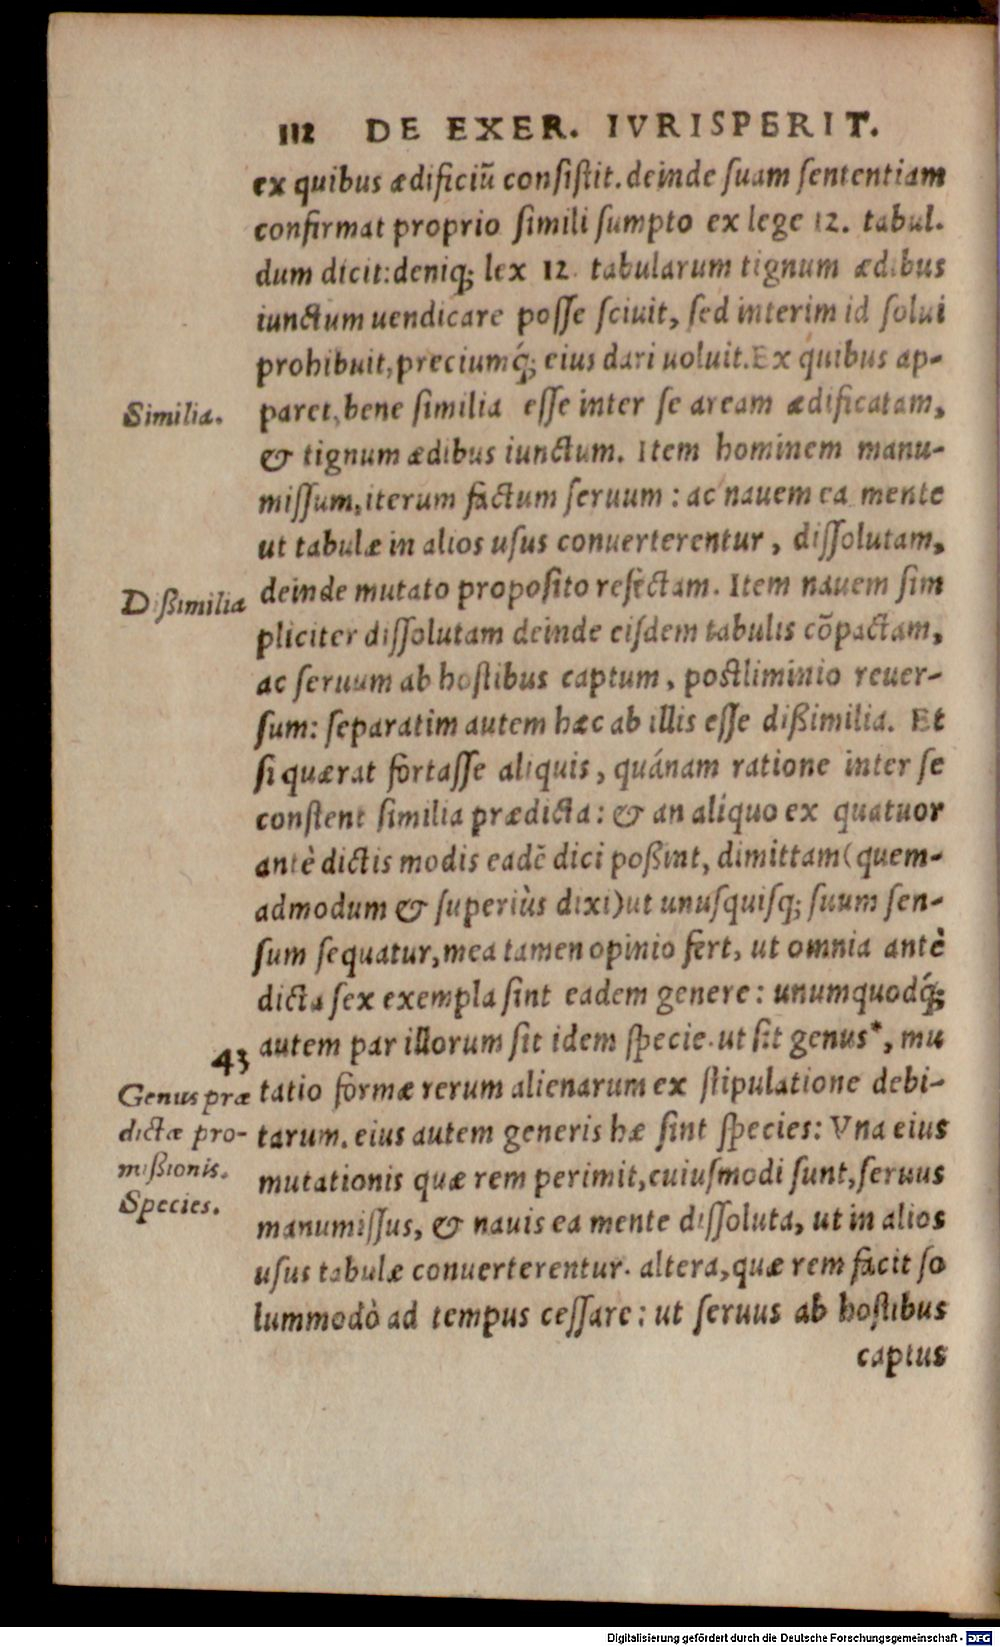 112 DE EXER. IVRISPERIT.
ex quibus ædificiũ consiſtit. deinde ſuam ſententiam
confirmat proprio ſimili ſumpto ex lege 12. tabul.
dum dicit: deniq; lex 12. tabularum tignum ædibus
iunctum uendicare poſſe ſciuit, ſed interim id ſolui
prohibuit, preciumq́; eius dari uoluit. Ex quibus ap-
Similia.
paret, bene ſimilia eſſe inter ſe aream ædificatam,
& tignum ædibus iunctum. Item hominem manu-
miſſum, iterum factum ſeruum : ac nauem ea mente
ut tabulæ in alios uſus conuerterentur, diſſolutam,
Dißimilia
deinde mutato propoſito refectam. Item nauem ſim
pliciter diſſolutam deinde eiſdem tabulis cõpactam,
ac ſeruum ab hoſtibus captum, poſtliminio reuer-
ſum: ſeparatim autem hæc ab illis eſſe dißimilia. Et
ſi quærat fortaſſe aliquis, quánam ratione inter ſe
conſtent ſimilia prædicta: & an aliquo ex quatuor
antè dictis modis eadẽ dici poßint, dimittam (quem-
admodum & ſuperiùs dixi) ut unuſquiſq; ſuum ſen-
ſum ſequatur, mea tamen opinio fert, ut omnia antè
dicta ſex exempla ſint eadem genere: unumquodq́;
43
autem par illorum ſit idem ſpecie. ut ſit genus*, mu
Genus præ
dictæ pro-
mißionis.
Species.
tatio formæ rerum alienarum ex ſtipulatione debi-
tarum. eius autem generis hæ ſint ſpecies: Vna eius
mutationis quæ rem perimit, cuiuſmodi ſunt, ſeruus
manumiſſus, & nauis ea mente diſſoluta, ut in alios
uſus tabulæ conuerterentur. altera, quæ rem facit ſo
lummodò ad tempus ceſſare: ut ſeruus ab hoſtibus
captus
Digitalisierung gefördert durch die Deutsche Forschungsgemeinschaft - DFG